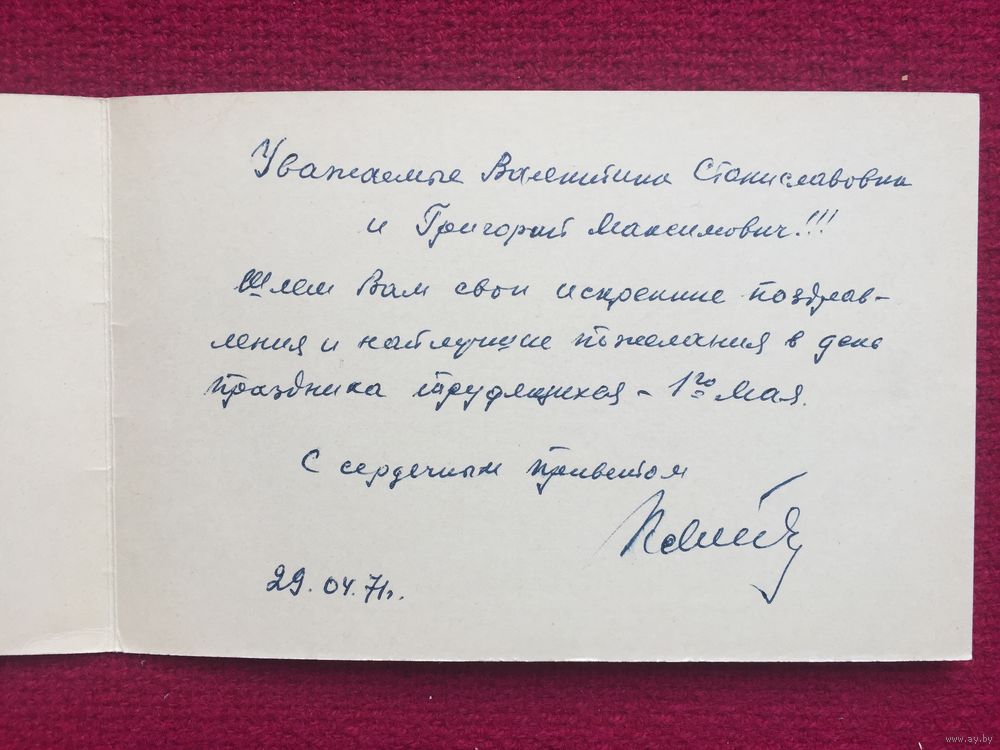 Уважаемые Валентина Станиславовна
и Григорий Максимович!!!
Шлем Вам свои искренние поздрав-
ления и наилучшие пожелания в день
праздника трудящихся - 1го Мая.
С сердечным приветом
29.04.71г.
www.ay.by